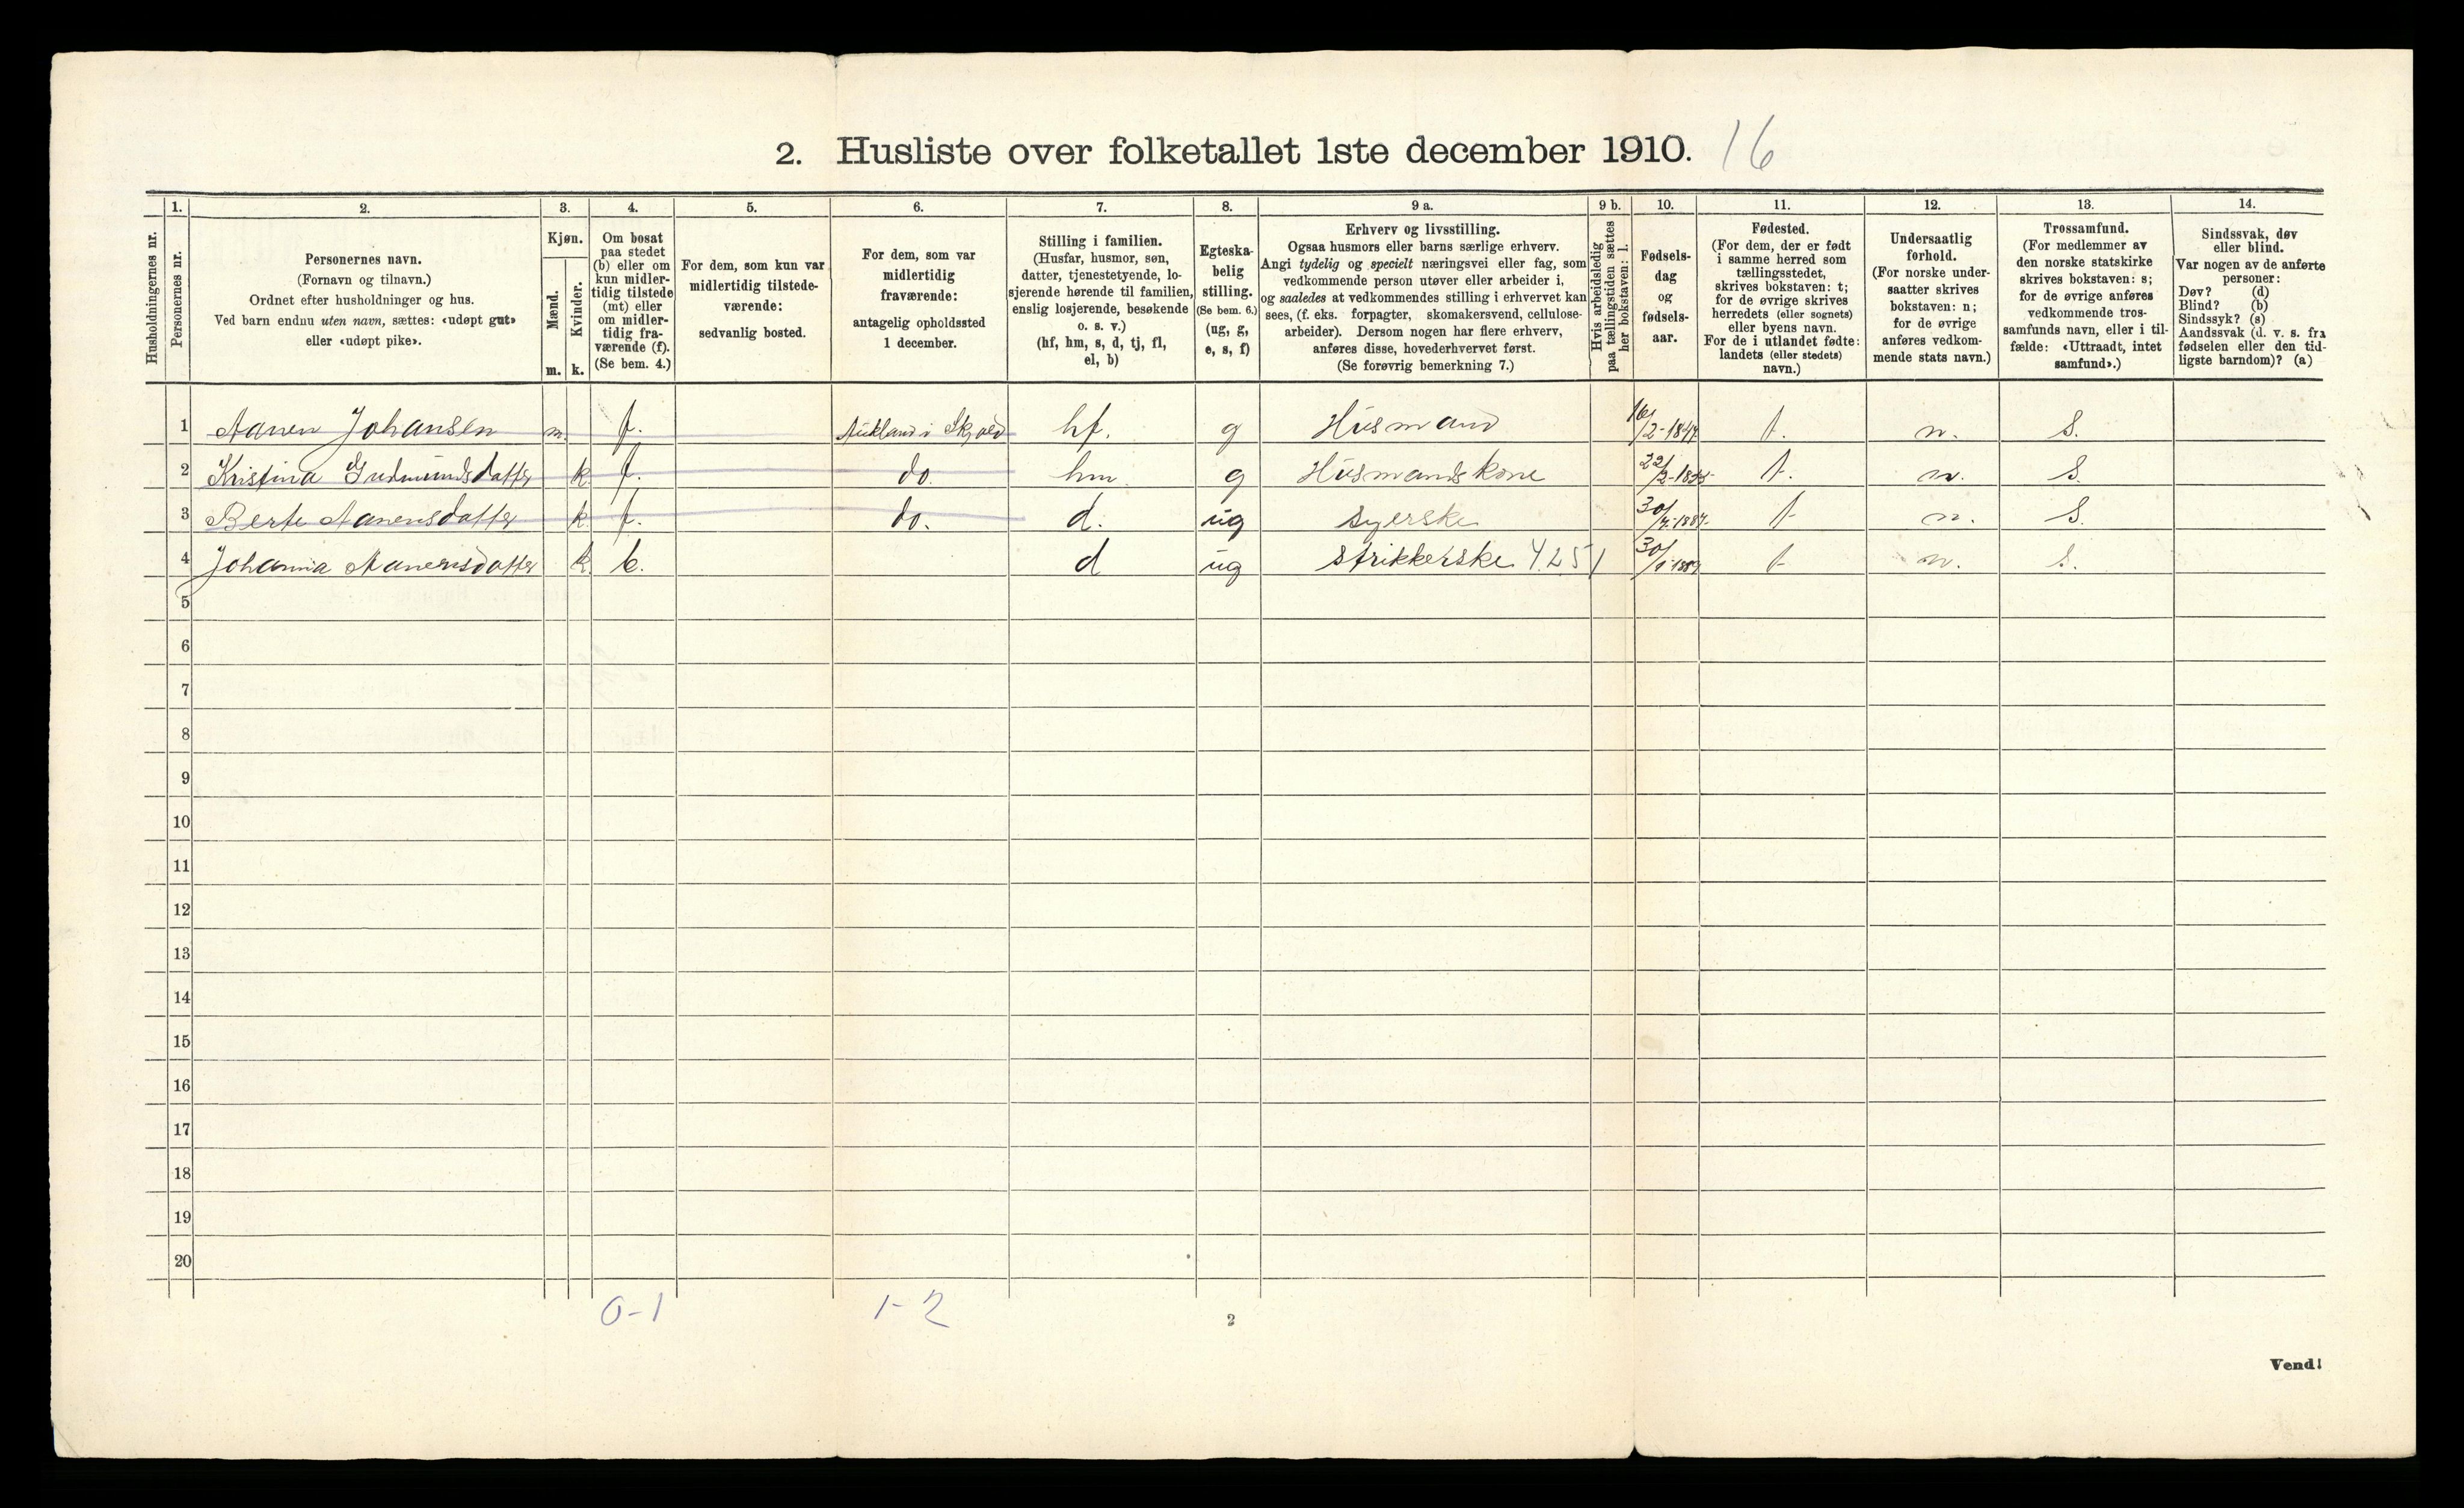 2. Husliste over folketallet 1ste december 1910. 16
Husholdningernes nr.
1.
Personernes nr.
2.
Personernes navn.
(Fornavn og tilnavn.)
Ordnet efter husholdninger og hus.
Ved barn endnu uten navn, sættes: «udøpt gut»
eller «udøpt pike».
3.
Kjøn.
Mænd.
Kvinder.
m. k.
4.
Om bosat
paa stedet
(b) eller om
kun midler-
tidig tilstede
(mt) eller
om midler-
tidig fra-
værende (f).
(Se bem. 4.)
5.
For dem, som kun var
midlertidig tilstede-
værende:
sedvanlig bosted.
6.
For dem, som var
midlertidig
fraværende:
antagelig opholdssted
1 december.
7.
Stilling i familien.
(Husfar, husmor, søn,
datter, tjenestetyende, lo-
sjerende hørende til familien,
enslig losjerende, besøkende
o. s. v.)
(hf, hm, s, d, tj, fl,
el, b)
8.
Egteska-
belig
stilling.
(Se bem. 6.)
(ug, g,
e, s, f)
9 a.
Erhverv og livsstilling.
Ogsaa husmors eller barns særlige erhverv.
Angi tydelig og specielt næringsvei eller fag, som
vedkommende person utøver eller arbeider i,
og saaledes at vedkommendes stilling i erhvervet kan
sees, (f. eks. forpagter, skomakersvend, cellulose-
arbeider). Dersom nogen har flere erhverv,
anføres disse, hovederhvervet først.
(Se forøvrig bemerkning 7.)
9 b.
Hvis arbeidsledig
paa tællingstiden sættes
her bokstaven: l.
10.
Fødsels-
dag
og
fødsels-
aar.
11.
Fødested.
(For dem, der er født
i samme herred som
tællingsstedet,
skrives bokstaven: t;
for de øvrige skrives
herredets (eller sognets)
eller byens navn.
For de i utlandet fødte:
landets (eller stedets)
navn.)
12.
Undersaatlig
forhold.
(For norske under-
saatter skrives
bokstaven: n;
for de øvrige
anføres vedkom-
mende stats navn.)
13.
Trossamfund.
(For medlemmer av
den norske statskirke
skrives bokstaven: s;
for de øvrige anføres
vedkommende tros-
samfunds navn, eller i til-
fælde: «Uttraadt, intet
samfund».)
14.
Sindssvak, døv
eller blind.
Var nogen av de anførte
personer:
Døv? (d)
Blind? (b)
Sindssyk? (s)
Aandssvak (d. v. s. fra
fødselen eller den tid-
ligste barndom)? (a)
1 Aanen Johansen m. f. i Skjold hf. g Husmand 16/2-1847. t. n. S.
2 Kristina Gudmundsdatter k. f. do. hm g Husmandskone 22/2- t. n. S.
3 Berte Aanensdatter k. f. do. d. ug syerske 30/ t n. S.
4 Johanna Aanensdatter k. b. d ug strikkerske 4251 30/ t n. S.
5
6
7
8
9
10
11
12
13
14
15
16
17
18
19
20
0-1 1-2
2
Vend!